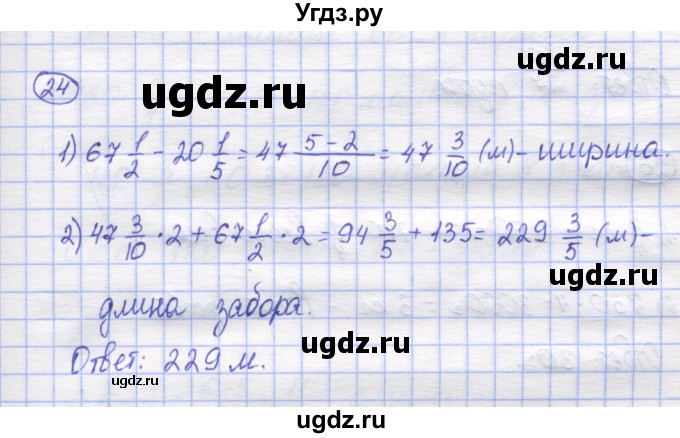 Угдз.ру
24
ugdz.ru
ugdz.ru
1) 67 1/2 - 20 1/5 = 47 (5-2)/10 = 47 3/10 (м) - ширина.
2) 47 3/10 · 2 + 67 1/2 · 2 = 94 3/5 + 135 = 229 3/5 (м) -
ugdz.ru
длина забора.
Ответ: 229 м.
ugdz.ru
ugdz.ru
ugdz.ru